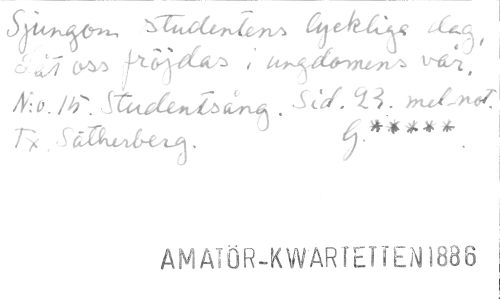 Sjungom studentens lyckliga dag,
Låt oss fröjdas i ungdomens vår.
N:o. 15. Studentsång. Sid. 23. mel-not.
Tx. Sätherberg. G. *****.
AMATÖR-KWARTETTEN 1886